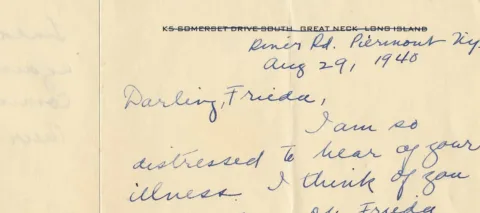 KS SOMERSET DRIVE SOUTH GREAT NECK LONG ISLAND
River Rd. Piermont N.Y.
Aug 29, 1940
Darling, Frieda,
I am so
distressed to hear of your
illness. I think of you
Frieda